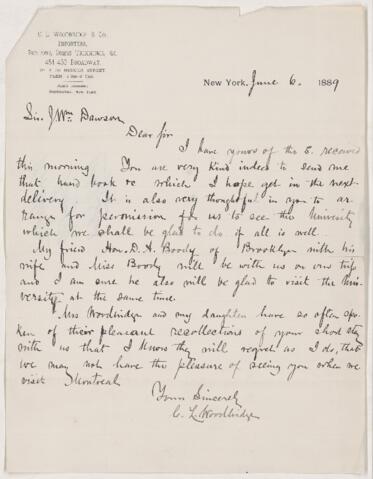 C. L. WOODBRIDGE & CO.
IMPORTERS,
451-453 BROADWAY.
New York, June 6. 1889
Sir J Wm Dawson
Dear Sir
I have yours of the 5. received
this morning You are very kind indeed to send me
that hand book &c which I hope get in the next
delivery. It is also very thoughtful in you to ar-
range for permission for us to see the University
which we shall be glad to do if all is well.
My friend Hon. D. A. Boody of Brooklyn with his
wife and Miss Boody will be with us on our trip
and I am sure he also will be glad to visit the Uni-
versity at the same time.
Mrs Woodbridge and my daughter have so often spo-
ken of their pleasant recollections of your short stay
with us that I know they will regret as I do, that
we may not have the pleasure of seeing you when we
visit Montreal
Yours Sincerely
C. L. Woodbridge